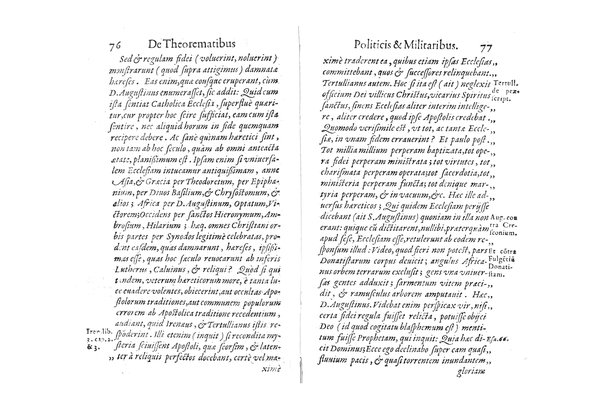 76 De Theorematibus
Sed & regulam fidei (voluerint, noluerint)
monstrarunt (quod supra attigimus) damnatæ
hæreses. Eas enim, quæ eousque eruperant, cum
D. Augustinus enumerasset, sic addit: Quid cum
ista sentiat Catholica Ecclesia, superflue quæri-
tur, cum propter hoc scire sufficiat, eam cum ista
sentire, nec aliquid horum in fide quemquam
recipere debere. Ac sane quinam hæretici sint,
non tam ab hoc sæculo, quàm ab omni anteacta
ætate, planissimum est. Ipsam enim si vniuersa-
lem Ecclesiam intueamur antiquissimam, anne
Asia, & Græcia per Theodoretum, per Epipha-
nium, per Diuos Basilium, & Chrysostomum, &
alios; Africa per D. Augustinum, Optatum, Vi-
ctorem; Occidens per sanctos Hieronymum, Am-
brosium, Hilarium; hæq. omnes Christiani or-
bis partes per Synodos legitimè celebratas, cre-
dem, quas damnarunt, hæreses, ipsissi-
mas esse, quas hoc sæculo reuocarunt ab inferis
Lutherus, Caluinus, & reliqui? Quod si qui-
dem, veterum hæreticorum more, è tanta lu-
ce euadere volentes, obiicerint, aut occultas Apo-
stolorum traditiones, aut communem populorum
errorem ab Apostolica traditione recedentium,
audiant, quid Irenæus, & Tertullianus istis re-
spōderint. Illi etenim (inquit) si recondita my-
steria sciuissent Apostoli, quæ seorsim, & laten-
ter à reliquis perfectos docebant, certè vel ma-
ximè
Iren. lib.
2. & 3.
Politicis & Militaribus. 77
ximè traderent ea, quibus etiam ipsas Ecclesias
committebant, quos & successores relinquebant.
Tertullianus autem. Hoc si ita est (ait) neglexit
officium Dei villicus Christus, vicarius Spiritus
sanctus, sinens Ecclesias aliter interim intellige-
re, aliter credere, quod ipse Apostolos credebat.
Quomodo verisimile est, vt tot, ac tantæ Eccle-
siæ, in vnam fidem errauerint? Et paulo post.
Tot millia millium perperam baptizata, tot ope-
ra fidei perperam ministrata; tot virtutes, tot
charismata perperam operata; tot sacerdotia, tot
ministeria perperam functa; tot denique mar-
tyria perperam, & in vacuum, &c. Hæc ille ad-
uersus hæreticos; Qui quidem Ecclesiam perisse
dicebant (ait S. Augustinus) quoniam in illa non
erant: quippe cū dictitarent, nullibi, præterquàm
apud sese, Ecclesiam esse, retulerunt ab eodem re-
sponsum illud: Video, quod fieri non potest; in
Donatistarum corpus deuicit; angulus Africa-
nus orbem terrarum exclusit; gens vna vniuer-
sas gentes adduxit; sarmentum vitem præci-
dit, & ramusculus arborem amputauit. Hæc
D. Augustinus. Videbat enim perspicax vir, nisi
certa fides regula fuisset relicta, potuisse obiici
Deo (id quod cogitatu blasphemum est) menti-
tum fuisse Prophetam, qui inquit: Quia hæc di-
cit Dominus; Ecce ego declinabo super eam quasi
fluuium pacis, & quasi torrentem inundantem
gloriam
Tertull.
de præ-
script.
Aug. con-
tra Cre-
sconium.
Es cōtra
Fulgētiū
Donati-
stam.
Isa. 66.